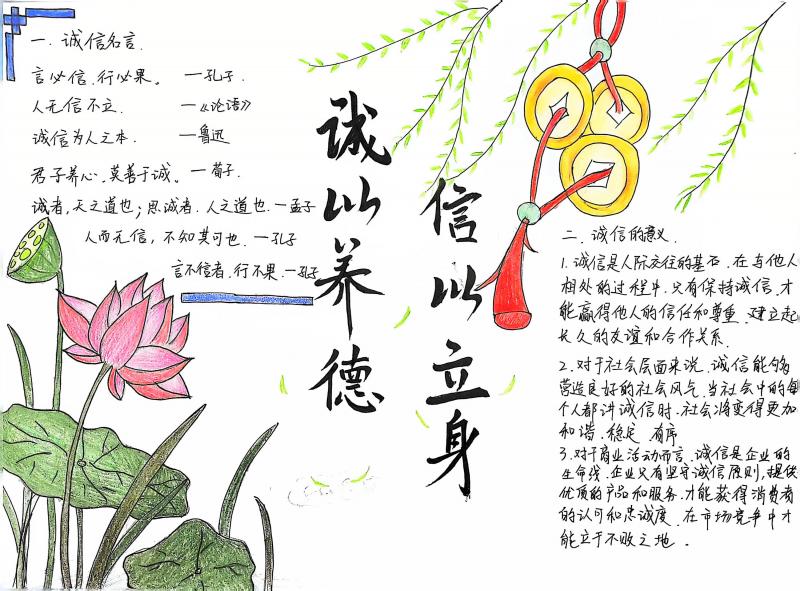 一、诚信名言.
言必信、行必果。 —孔子.
人无信不立. —《论语》
诚信为人之本. —鲁迅
君子养心、莫善于诚。—荀子.
诚者,天之道也;思诚者.人之道也.—孟子
人而无信,不知其可也.—孔子
言不信者、行不果.—孔子
诚以养德
信以立身
二、诚信的意义.
1.诚信是人际交往的基石.在与他人
相处的过程中.只有保持诚信.才
能赢得他人的信任和尊重.建立起
长久的友谊和合作关系.
2.对于社会层面来说.诚信能够
营造良好的社会风气.当社会中的每
个人都讲诚信时.社会将变得更加
和谐.稳定 有序
3.对于商业活动而言.诚信是企业的
生命线.企业只有坚守诚信原则,提供
优质的产品和服务.才能获得消费者
的认可和忠诚度.在市场竞争中才
能立于不败之地.